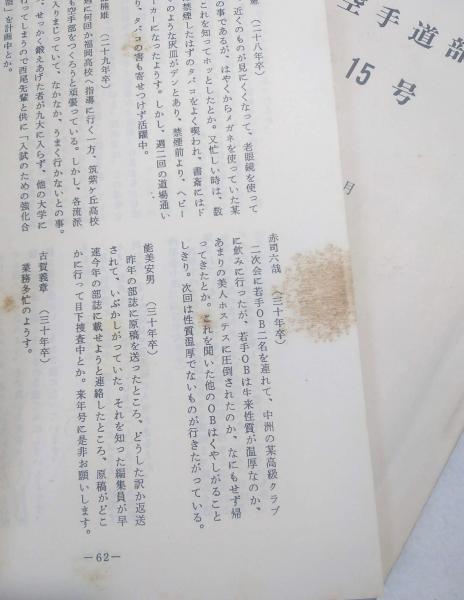 空手道部
15号
月
雄 (二十八年卒)
近くのものが見にくくなって、老眼鏡を使って
の事であるが、はやくからメガネを使っていた某
これを知ってホッとしたとか。又忙しい時は、数
禁煙したはずのタバコをよく喫われ、書斎にはド
のような灰皿がデンとあり、禁煙前より、ヘビー
ーカーになったようす。しかし、週二回の道場通い
り、タバコの害も寄せつけず活躍中。
楠雄 (二十九年卒)
週に何回か福岡高校へ指導に行く一方、筑紫ケ丘高校
も空手部をつくろうと頑張っている。しかし、各流派
入りまじっていて、なかなか、うまく行かないとの事。
、せっかく鍛えあげた者が九大に入らず、他の大学に
行ってしまうので西尾先輩と供に「入試のための強化合
宿」を計画中とか。
赤司六哉 (三十年卒)
二次会に若手OB二名を連れて、中洲の某高級クラブ
に飲みに行ったが、若手OBは生来性質が温厚なのか、
あまりの美人ホステスに圧倒されたのか、なにもせず帰
ってきたとか。これを聞いた他のOBはくやしがること
しきり。次回は性質温厚でないものが行きたがっている。
能美安男 (三十年卒)
昨年の部誌に原稿を送ったところ、どうした訳か返送
されて、いぶかしがっていた。それを知った編集員が早
速今年の部誌に載せようと連絡したところ、原稿がどこ
かに行って目下捜査中とか。来年号に是非お願いします。
古賀義章 (三十年卒)
業務多忙のようす。
—62—